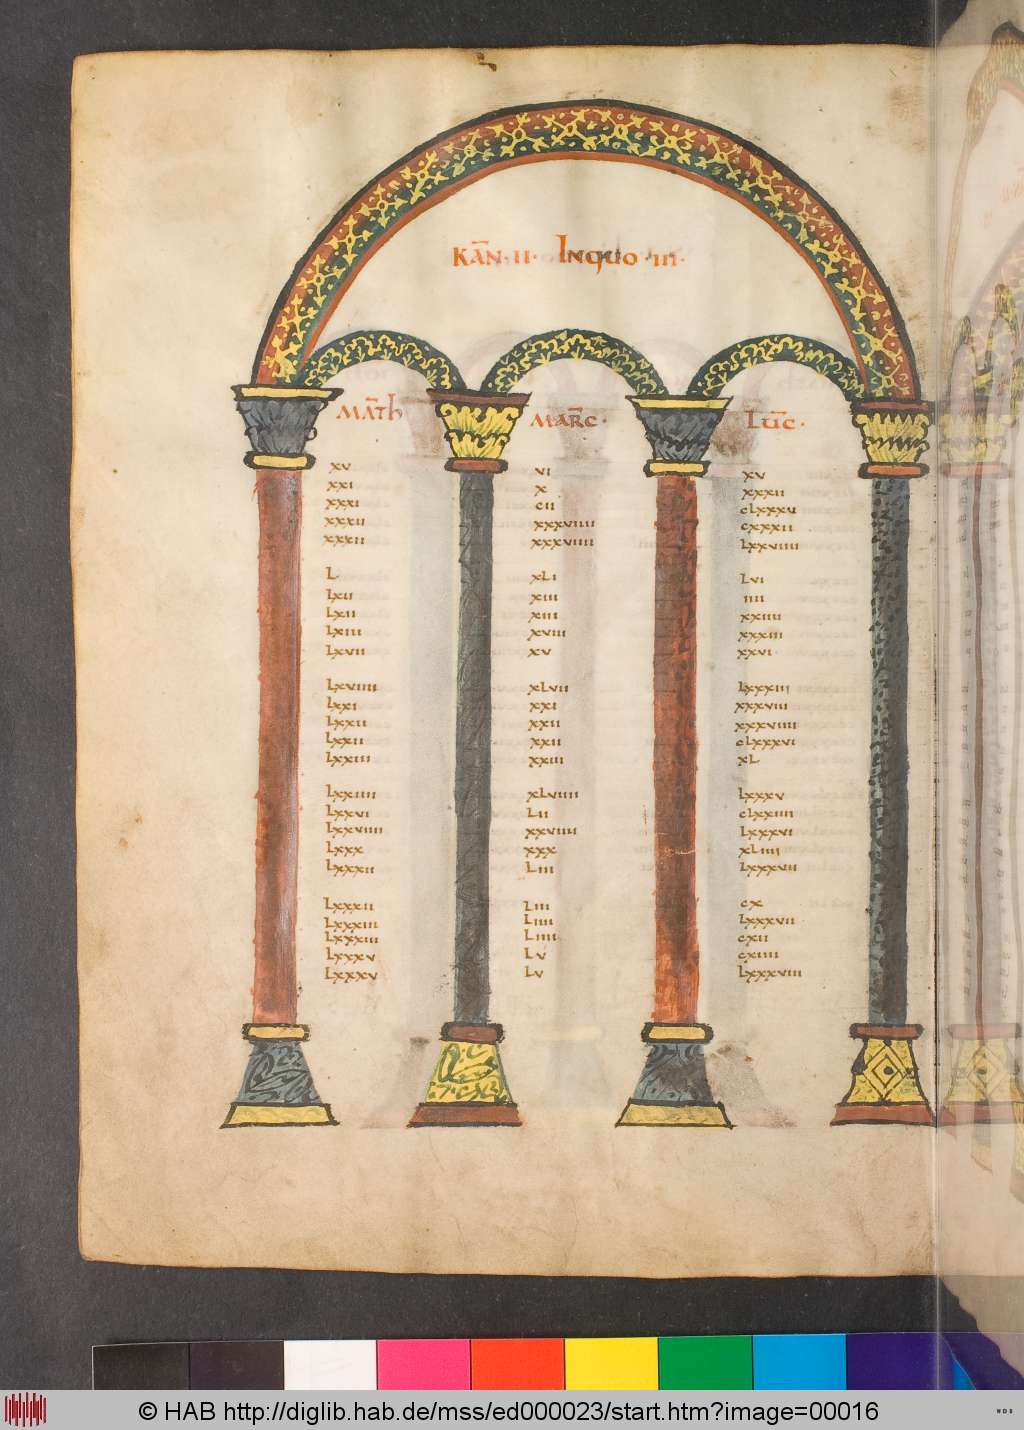 KAN̄·II· INQUO·III·
MAT̄H MARC̄· LUC̄·
XV VI XV
XXI X XXXII
XXXI CII CLXXXV
XXXII XXXVIIII CXXXII
XXXII XXXVIIII LXXVIIII
L XLI LVI
LXII XIII IIII
LXII XIII XXIIII
LXIII XVIII XXXIII
LXVII XV XXVI
LXVIIII XLVII LXXXIII
LXXI XXI XXXVIII
LXXII XXII XXXVIIII
LXXII XXII CLXXXVI
LXXIII XXIII XL
LXXIIII XLVIIII LXXXV
LXXVI LII CLXXIIII
LXXVIIII XXVIIII LXXXVI
LXXX XXX XLIIII
LXXXII LIII LXXXVII
LXXXII LIII CX
LXXXIII LIIII LXXXVII
LXXXIII LIIII CXII
LXXXV LV CXIIII
LXXXV LV LXXXVIII
© HAB http://diglib.hab.de/mss/ed000023/start.htm?image=00016
WDB